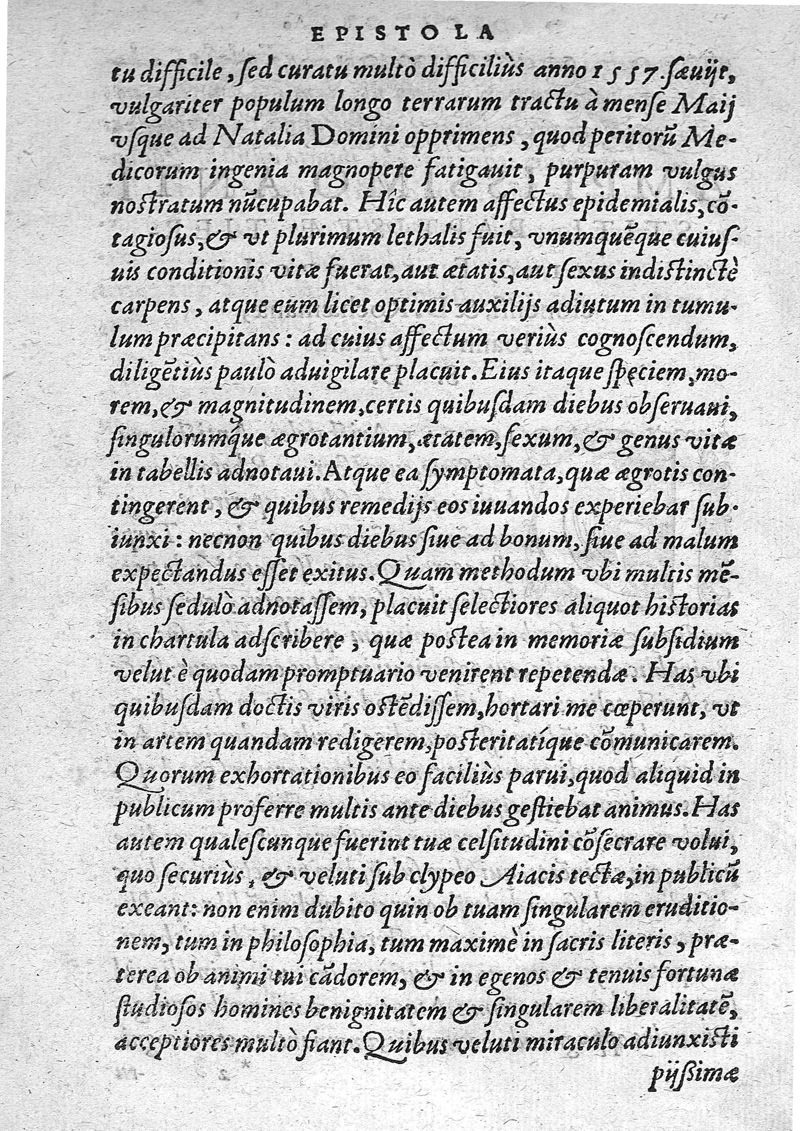 EPISTOLA
tu difficile, sed curatu multò difficiliùs anno 1557. sæuijt,
vulgariter populum longo terrarum tractu à mense Maij
vsque ad Natalia Domini opprimens, quod peritorũ Me-
dicorum ingenia magnopere fatigauit, purpuram vulgus
nostratum nũcupabat. Hîc autem affectus epidemialis, cõ-
tagiosus, & vt plurimum lethalis fuit, vnumquẽque cuius-
uis conditionis vitæ fuerat, aut ætatis, aut sexus indistinctè
carpens, atque eum licet optimis auxilijs adiutum in tumu-
lum præcipitans: ad cuius affectum veriùs cognoscendum,
diligẽtiùs paulò aduigilare placuit. Eius itaque speciem, mo-
rem, & magnitudinem, certis quibusdam diebus obseruaui,
singulorumq́ue ægrotantium, ætatem, sexum, & genus vitæ
in tabellis adnotaui. Atque ea symptomata, quæ ægrotis con-
tingerent, & quibus remedijs eos iuuandos experiebar sub-
iunxi: necnon quibus diebus siue ad bonum, siue ad malum
expectandus esset exitus. Quam methodum vbi multis mẽ-
sibus sedulò adnotassem, placuit selectiores aliquot historias
in chartula adscribere, quæ postea in memoriæ subsidium
velut è quodam promptuario venirent repetendæ. Has vbi
quibusdam doctis viris ostẽdissem, hortari me cœperunt, vt
in artem quandam redigerem, posteritatíque cõmunicarem.
Quorum exhortationibus eo faciliùs parui, quod aliquid in
publicum proferre multis ante diebus gestiebat animus. Has
autem qualescunque fuerint tuæ celsitudini cõsecrare volui,
quo securiùs, & veluti sub clypeo Aiacis tectæ, in publicũ
exeant: non enim dubito quin ob tuam singularem eruditio-
nem, tum in philosophia, tum maximè in sacris literis, præ-
terea ob animi tui cãdorem, & in egenos & tenuis fortunæ
studiosos homines benignitatem & singularem liberalitatẽ,
acceptiores multò fiant. Quibus veluti miraculo adiunxisti
pijssimæ